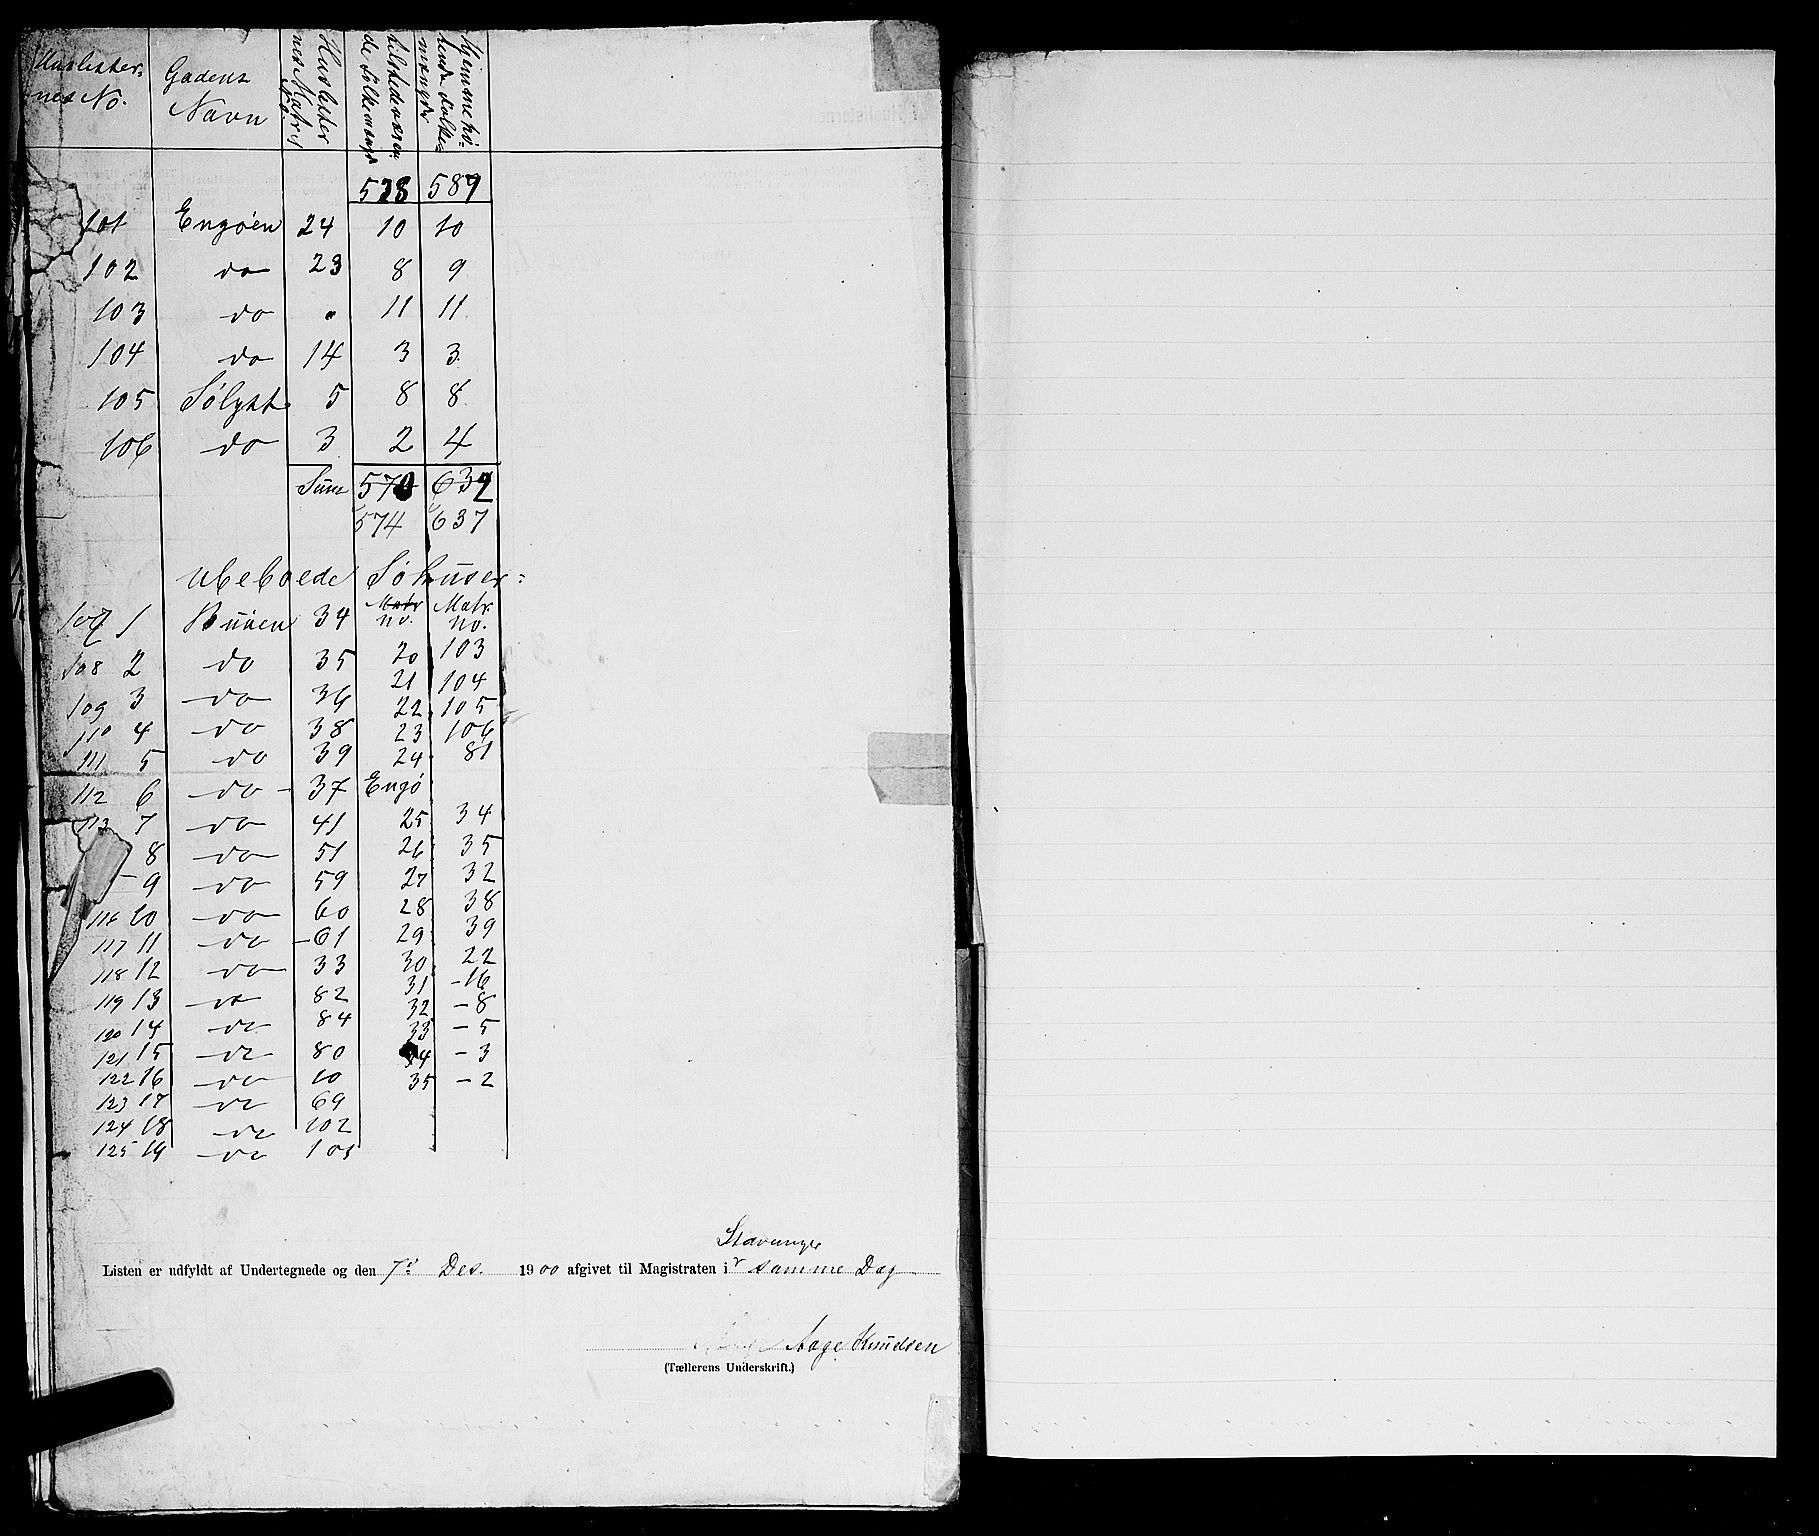 Huslister=
nes No.
Gadens
Navn
Huslister
nes Matr
No.
tilstedeværen
de Folkemængde
Hjemmehø=
rende Folke=
mængde
528 589
101 Engøen 24 10 10
102 do 23 8 9
103 do " 11 11
104 do 14 3 3
105 Sølyst 5 8 8
106 do 3 2 4
Sum 570 632
574 637
Ubeboede Søhuser=
107 1 Buøen 34 Matr no. Matr no.
108 2 do 35 20 103
109 3 do 36 21 104
22 105
110 4 do 38 23 106
111 5 do 39 24 81
112 6 do 37 Engø
113 7 do 41 25 34
8 do 51 26 35
9 do 59 27 32
116 10 do 60 28 38
117 11 do 61 29 39
118 12 do 33 30 22
119 13 do 82 31 16
120 14 do 84 32 8
33 5
121 15 do 80 34 3
122 16 do 10 35 2
123 17 do 69
124 18 do 102
125 19 do 101
Stavanger
Listen er udfyldt af Undertegnede og den 7de Des. 1900 afgivet til Magistraten i samme Dag
Aage Knudsen
(Tællerens Underskrift.)